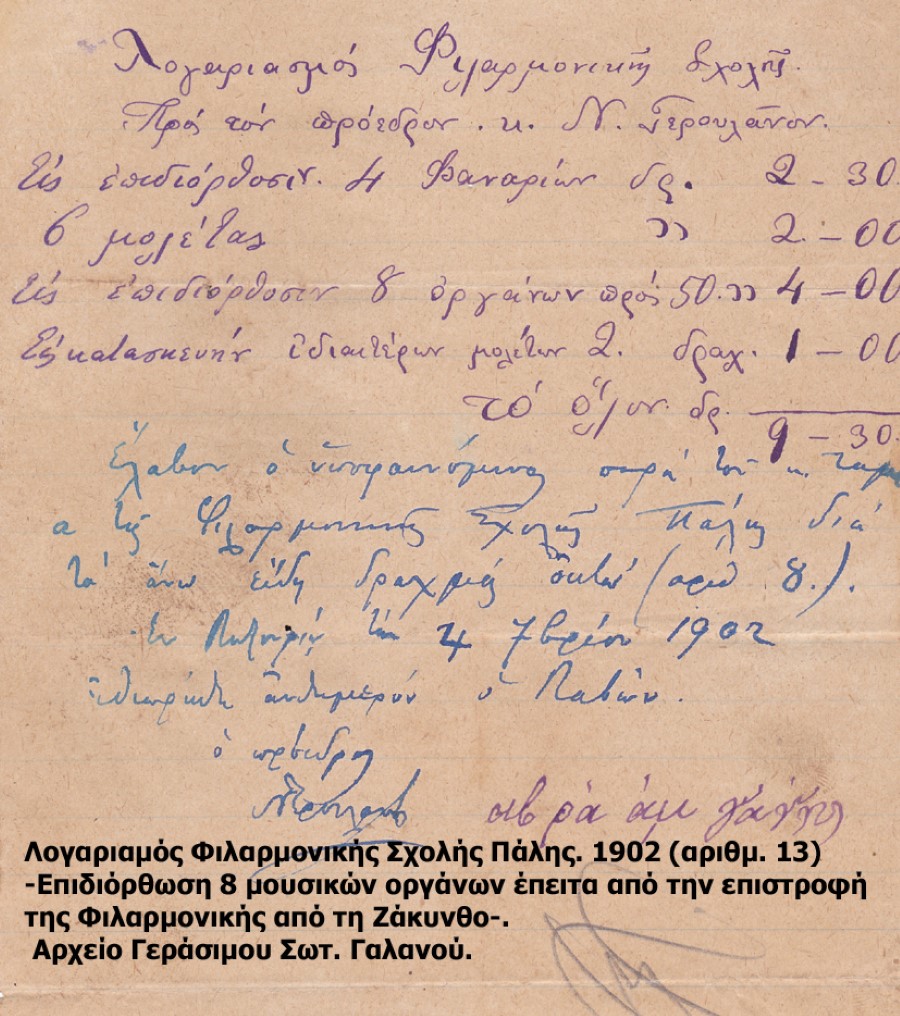 Λογαριασμός Φιλαρμονικῆς Σχολῆς.
Πρός τόν πρόεδρον. κ. Ν. Γερουλᾶνον.
Εἰς ἐπιδιόρθοσιν. 4 Φαναρίων δρ. 2 - 30.
6 μολέτας " 2 - 00
Εἰς ἐπιδιόρθοσιν 8 ὀργάνων πρός 50. " 4 - 00
Εἰς κατασκευήν ἰδιαιτέρων μολέτων 2. δραχ. 1 - 00
τό ὅλον. δρ. 9 - 30.
Ἔλαβον ὁ παρά τοῦ κ. ταμι
α τῆς Φιλαρμονικῆς Σχολῆς Πάλης διά
τά ἄνω εἴδη δραχμάς ὀκτώ (ἀριθ 8.).
Ἐν Ληξουρίῳ τήν 4 7βρίου 1902
ἐθεωρήθη αὐθημερόν ὁ Λαβών.
ὁ πρόεδρος
αβραάμ
Λογαριαμός Φιλαρμονικής Σχολής Πάλης. 1902 (αριθμ. 13)
-Επιδιόρθωση 8 μουσικών οργάνων έπειτα από την επιστροφή
της Φιλαρμονικής από τη Ζάκυνθο-.
Αρχείο Γεράσιμου Σωτ. Γαλανού.